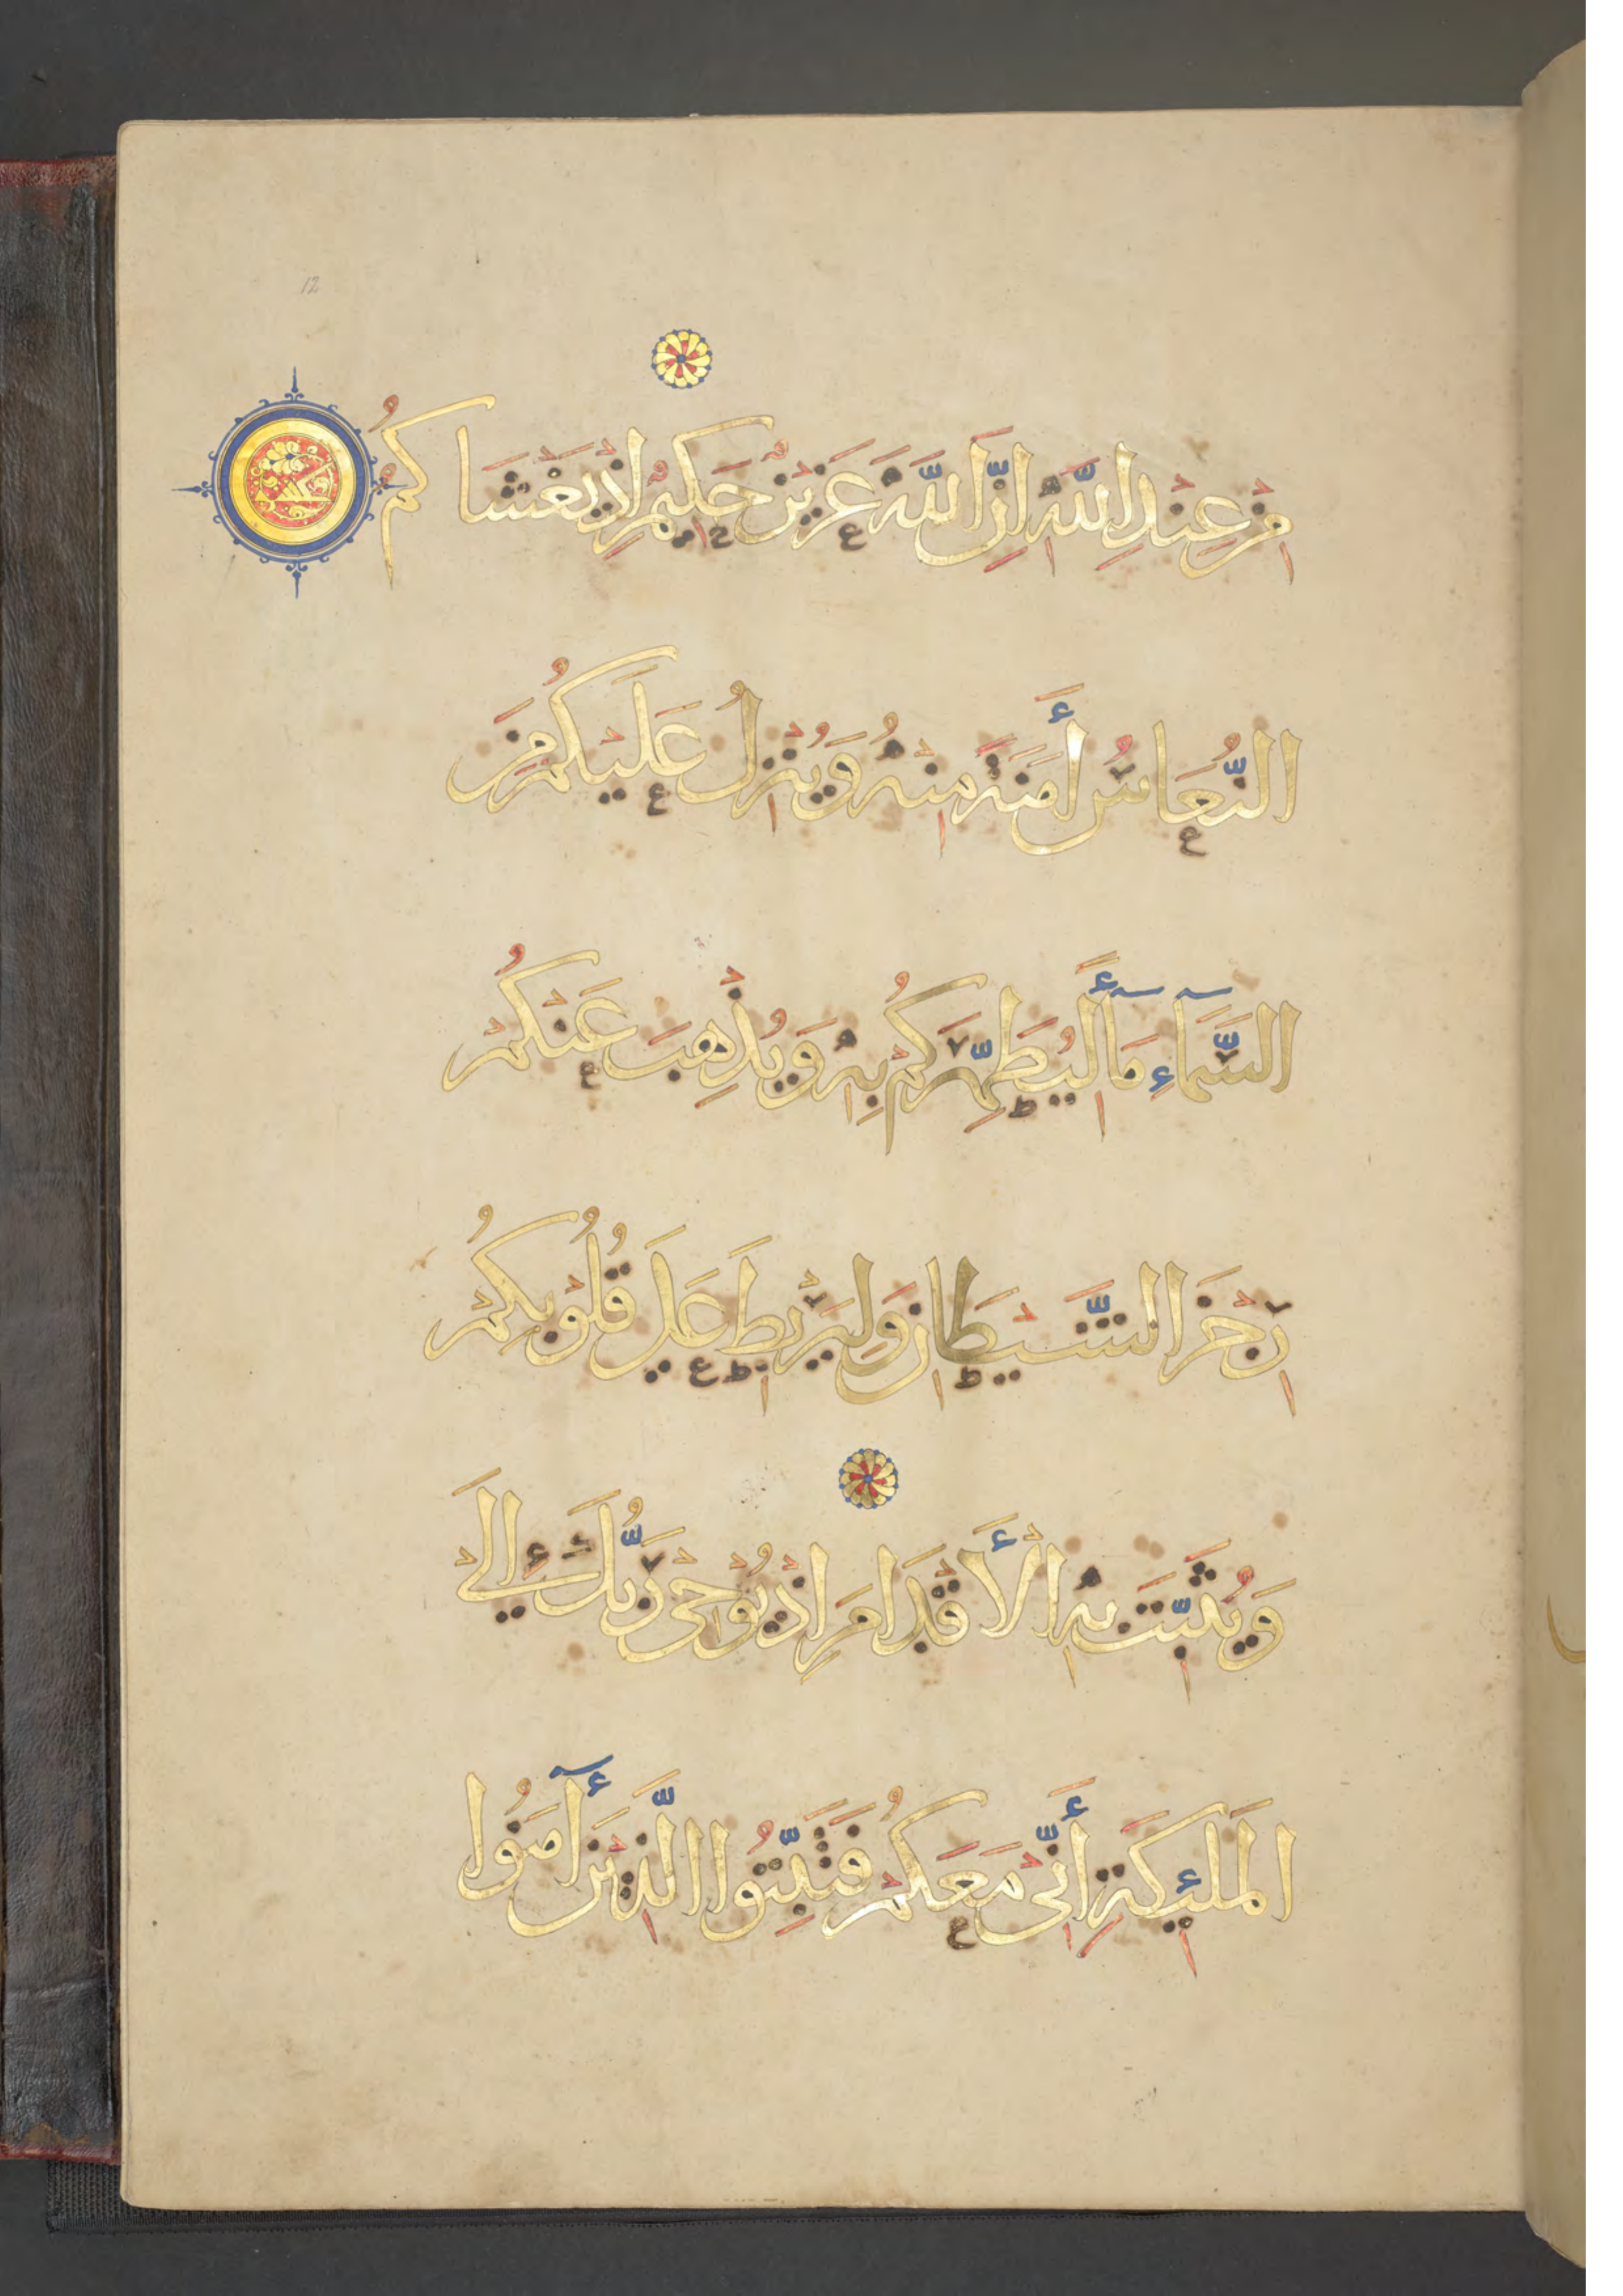 12
مِنْ عِنْدِ اللَّهِ إِنَّ اللَّهَ عَزِيزٌ حَكِيمٌ إِذْ يَغْشَاكُمُ
النُّعَاسُ أَمَنَةً مِنْهُ وَيُنْزِلُ عَلَيْكُمْ مِنَ
السَّمَآءِ مَآءً لِيُطَهِّرَكُمْ بِهِ وَيُذْهِبَ عَنْكُمْ
رِجْزَ الشَّيْطَانِ وَلِيَرْبِطَ عَلَى قُلُوبِكُمْ
وَيُثَبِّتَ بِهِ الْأَقْدَامَ إِذْ يُوْحِي رَبُّكَ إِلَى
الْمَلَئِكَةِ أَنِّي مَعَكُمْ فَثَبِّتُوا الَّذِينَ آمَنُوا